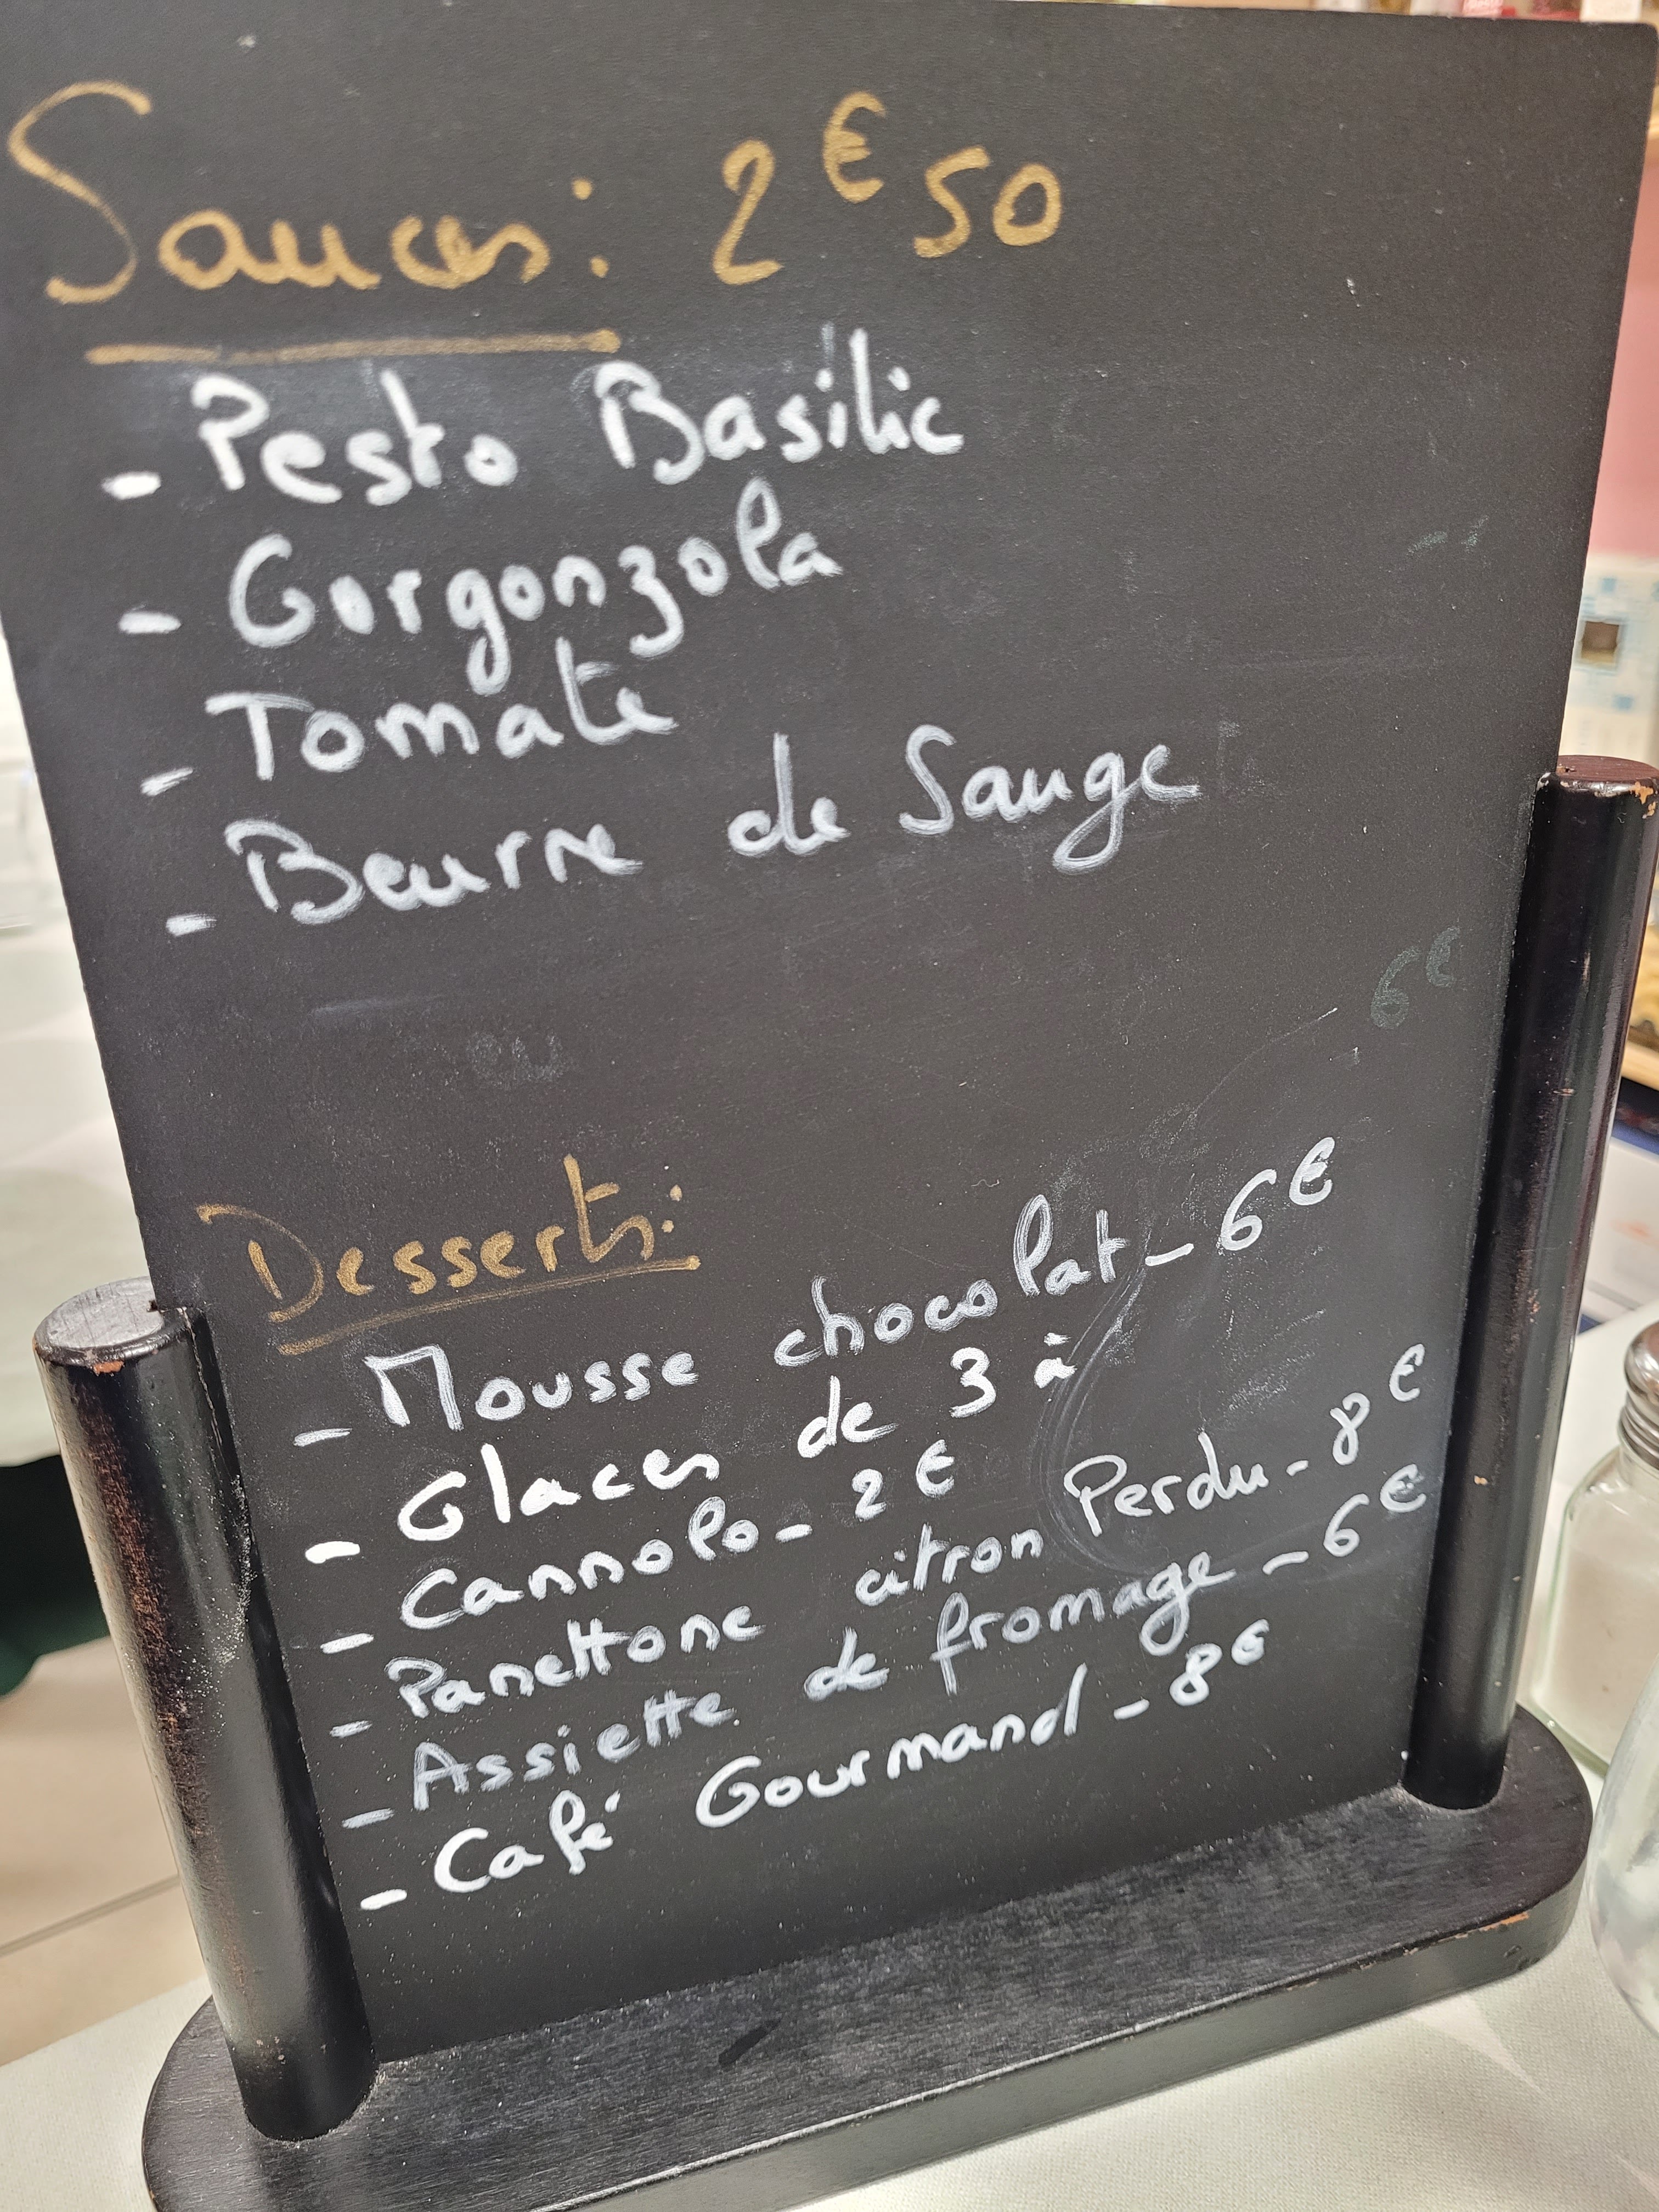 Sauces : 2€50
- Pesto Basilic
- Gorgonzola
- Tomate
- Beurre de Sauge
6€
Desserts :
- Mousse chocolat - 6€
- Glaces de 3 à
- Cannolo - 2€
- Panettone citron Perdu - 8€
- Assiette de fromage - 6€
- Café Gourmand - 8€